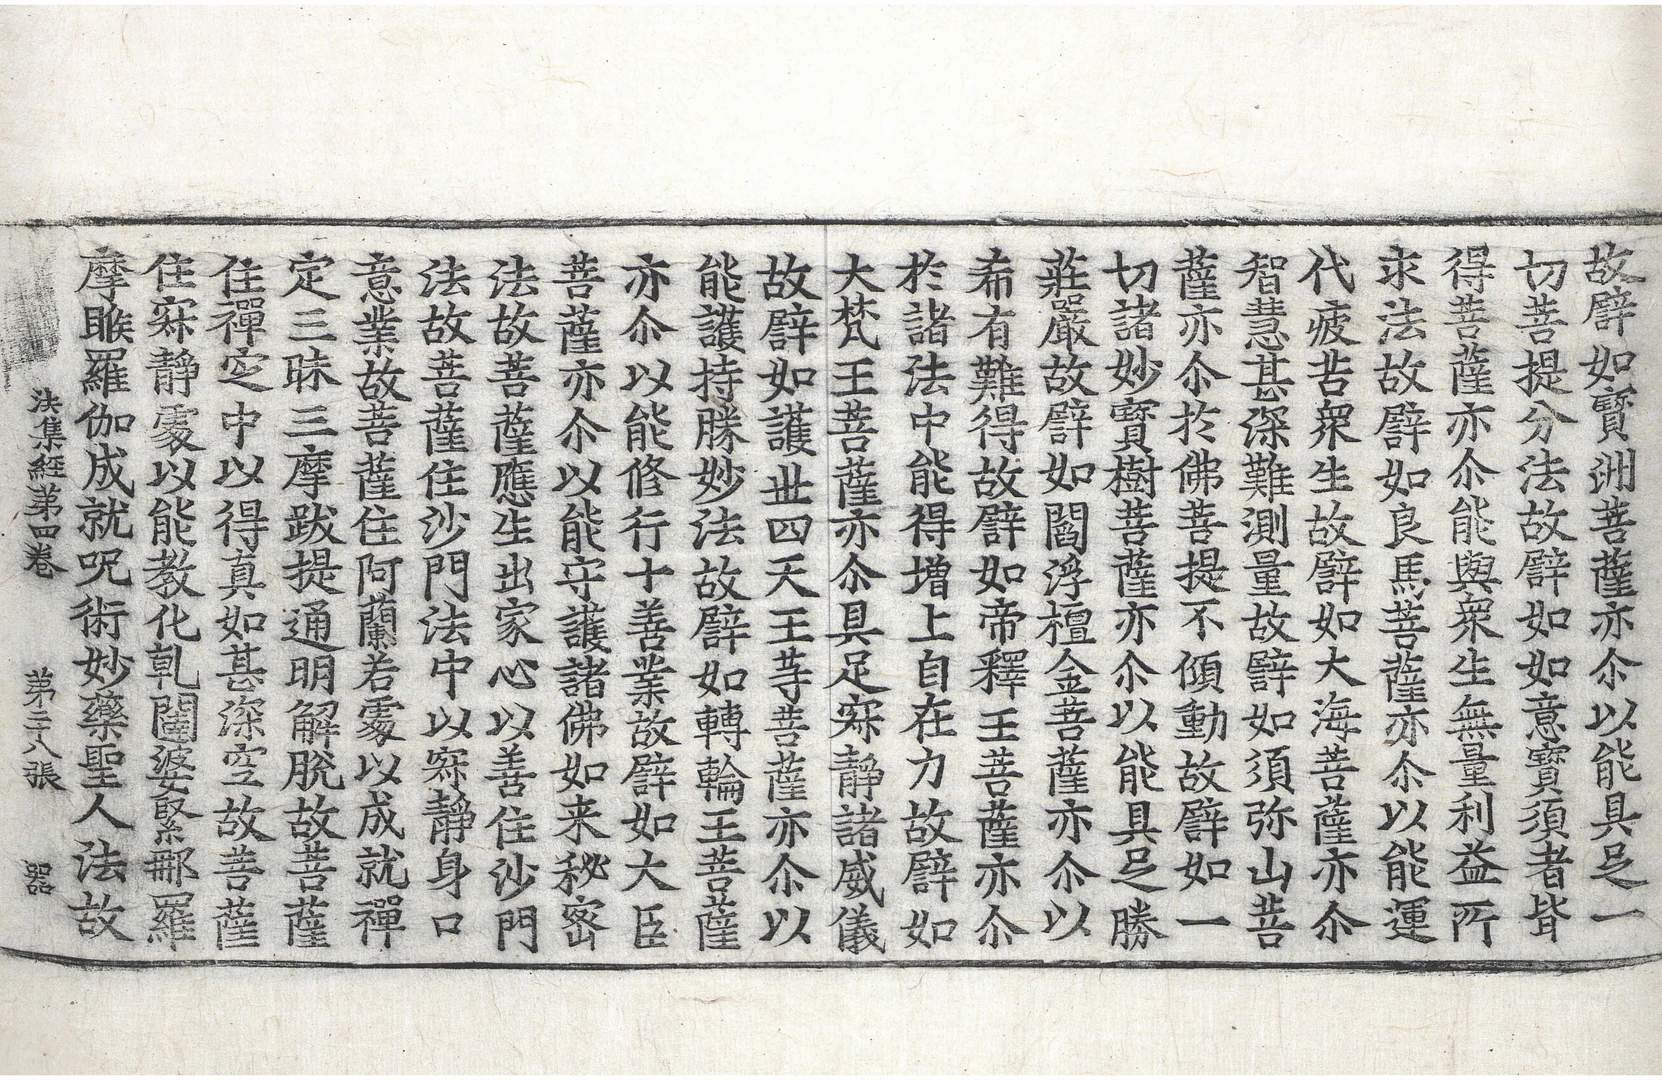 故譬如寶洲菩薩亦尒以能具足一
切菩提分法故譬如如意寶須者皆
得菩薩亦尒能與衆生無量利益所
求法故譬如良馬菩薩亦尒以能運
代疲苦衆生故譬如大海菩薩亦尒
智慧甚深難測量故譬如須弥山菩
薩亦尒於佛菩提不傾動故譬如一
切諸妙寶樹菩薩亦尒以能具足勝
莊嚴故譬如閻浮檀金菩薩亦尒以
希有難得故譬如帝釋王菩薩亦尒
於諸法中能得增上自在力故譬如
大梵王菩薩亦尒具足寂靜諸威儀
故譬如護世四天王等菩薩亦尒以
能護持勝妙法故譬如轉輪王菩薩
亦尒以能修行十善業故譬如大臣
菩薩亦尒以能守護諸佛如来秘密
法故菩薩應生出家心以善住沙門
法故菩薩住沙門法中以寂靜身口
意業故菩薩住阿蘭若處以成就禪
定三昧三摩跋提通明解脫故菩薩
住禪定中以得真如甚深空故菩薩
住寂靜處以能教化乹闥婆緊那羅
摩睺羅伽成就呪術妙藥聖人法故
法集經第四卷 第二十八張 器